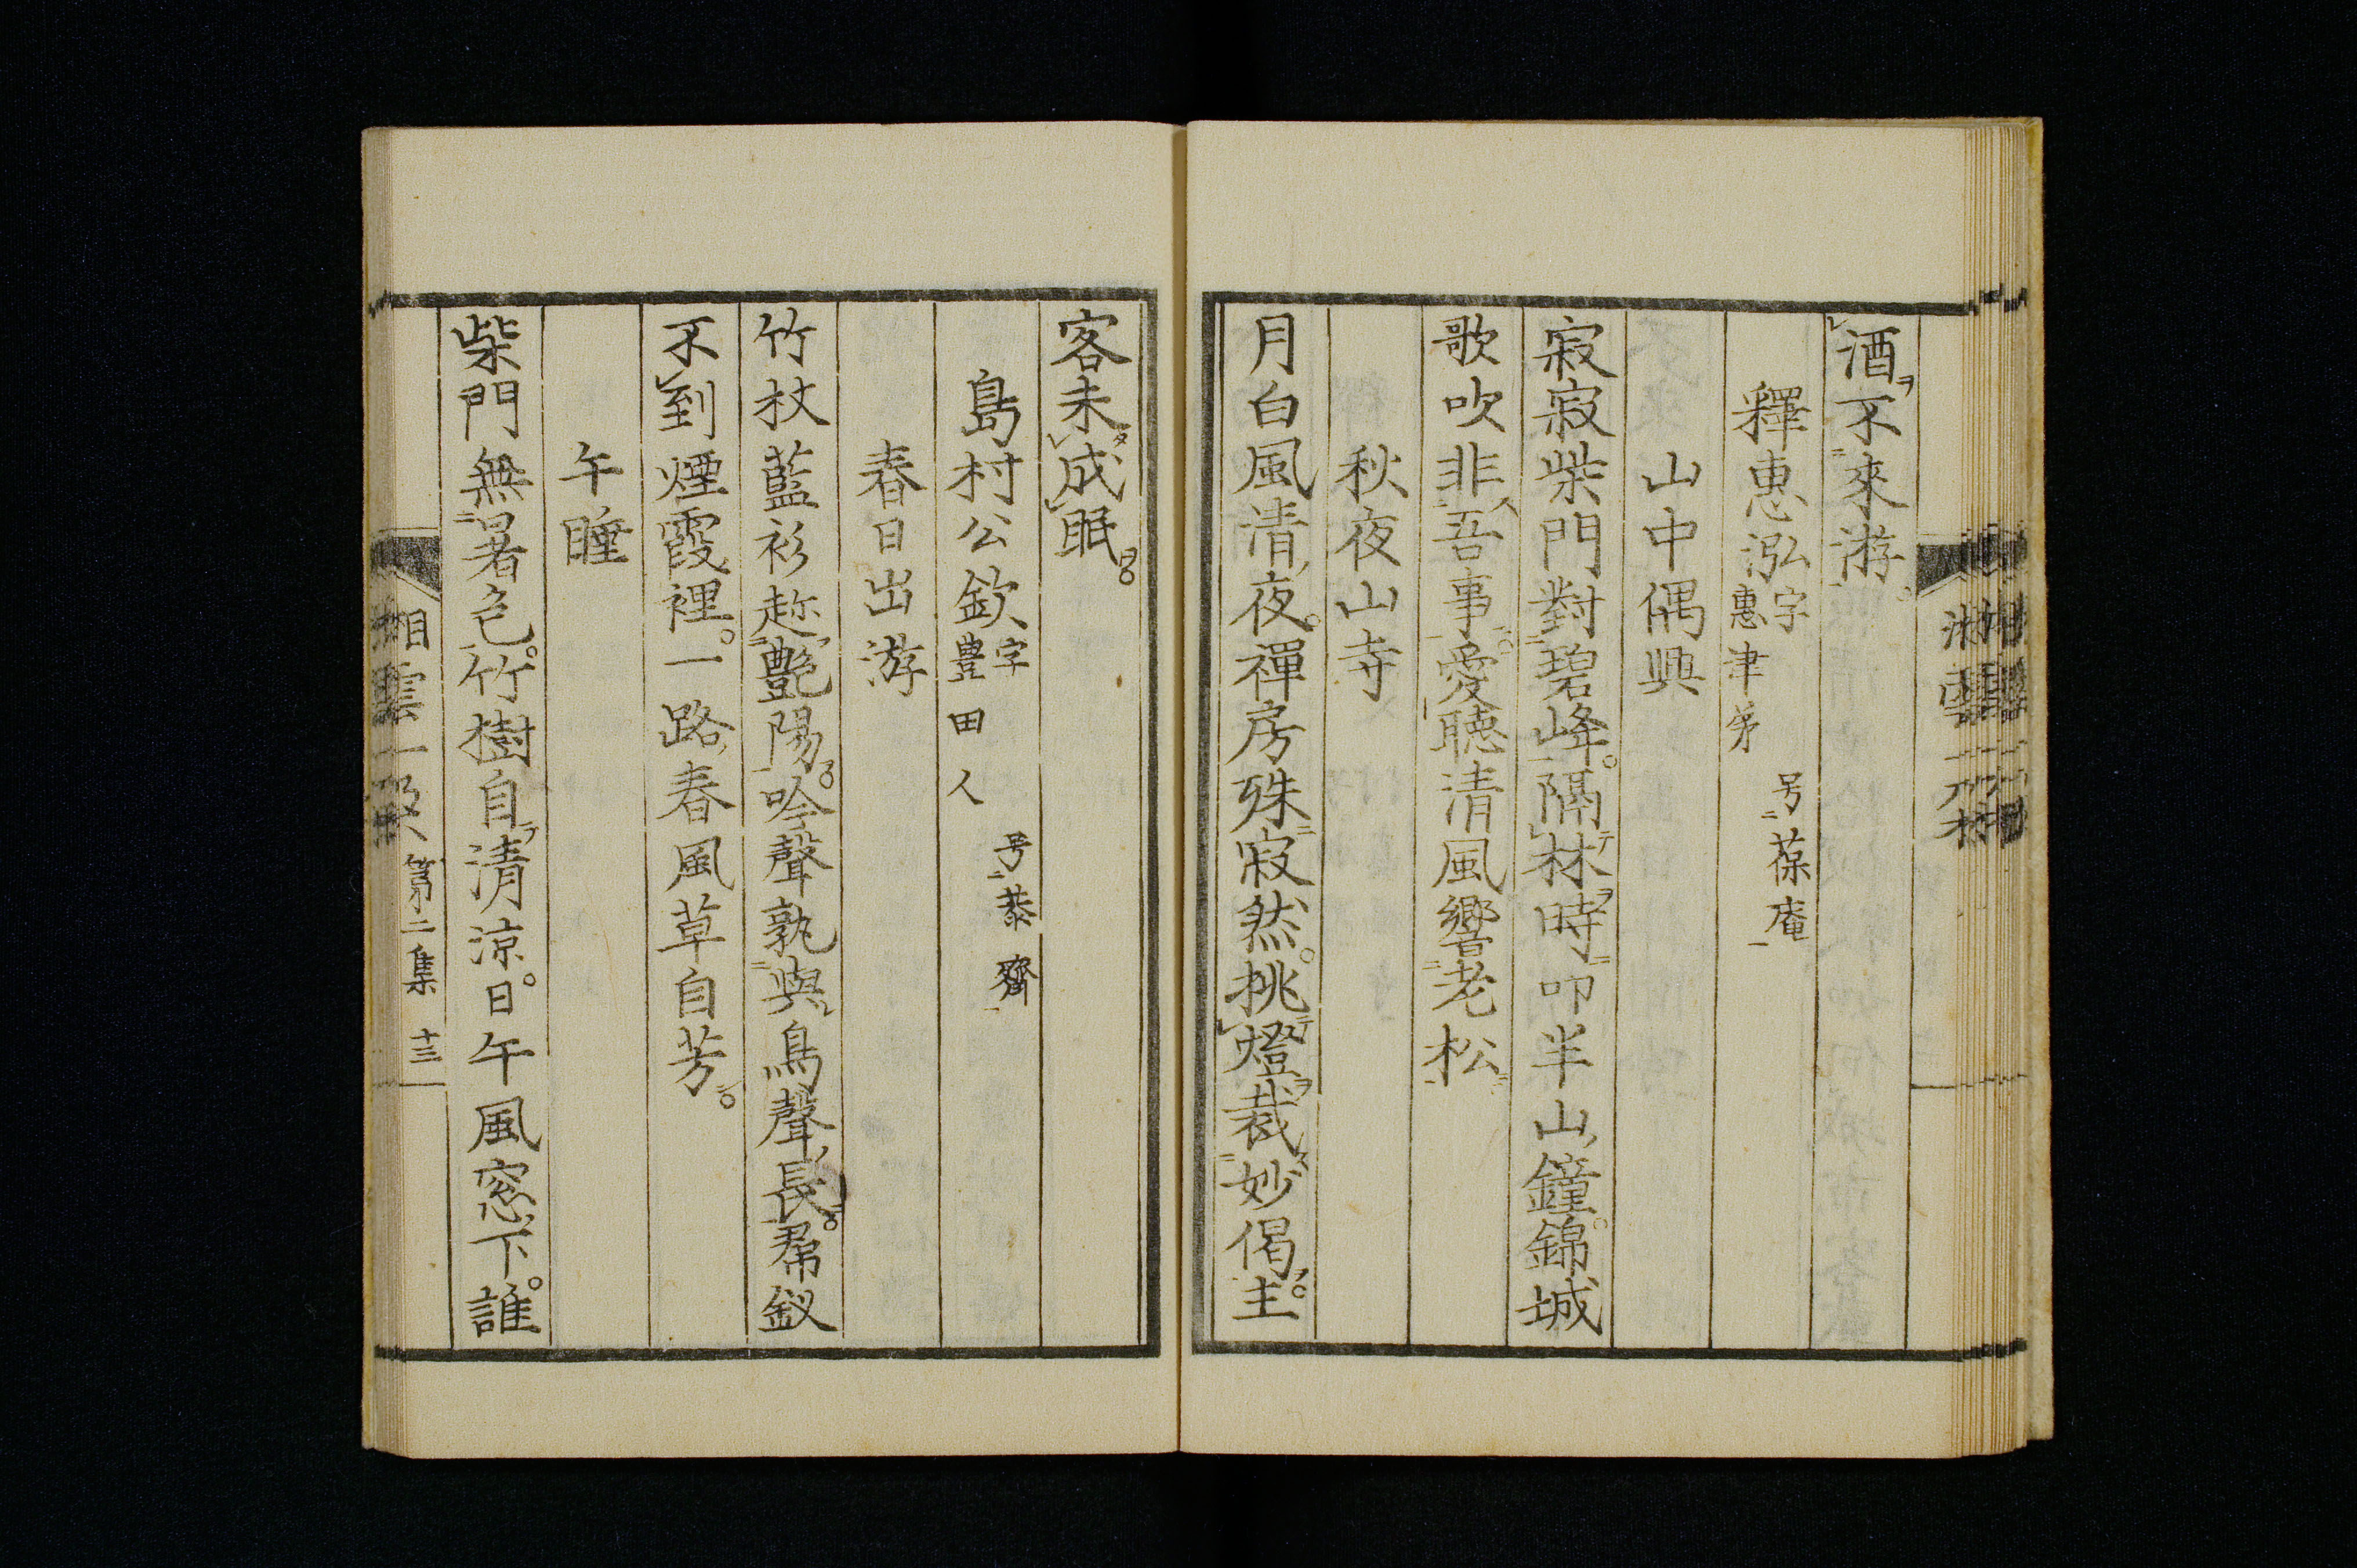 酒不來游
釋惠泓字惠津 号葆庵
山中偶興
寂寂柴門對碧峰隔林時叩半山鐘錦城
歌吹非吾事愛聽清風響老松
秋夜山寺
月白風清夜禪房殊寂然挑燈裁妙偈主
客未成眠
島村公欽字豊田人号恭齋
春日出游
竹杖藍衫趂艷陽吟聲孰與鳥聲長帬釵
不到煙霞裡一路春風草自芳
午睡
柴門無暑色竹樹自清涼日午風窓下誰
第二集 十三